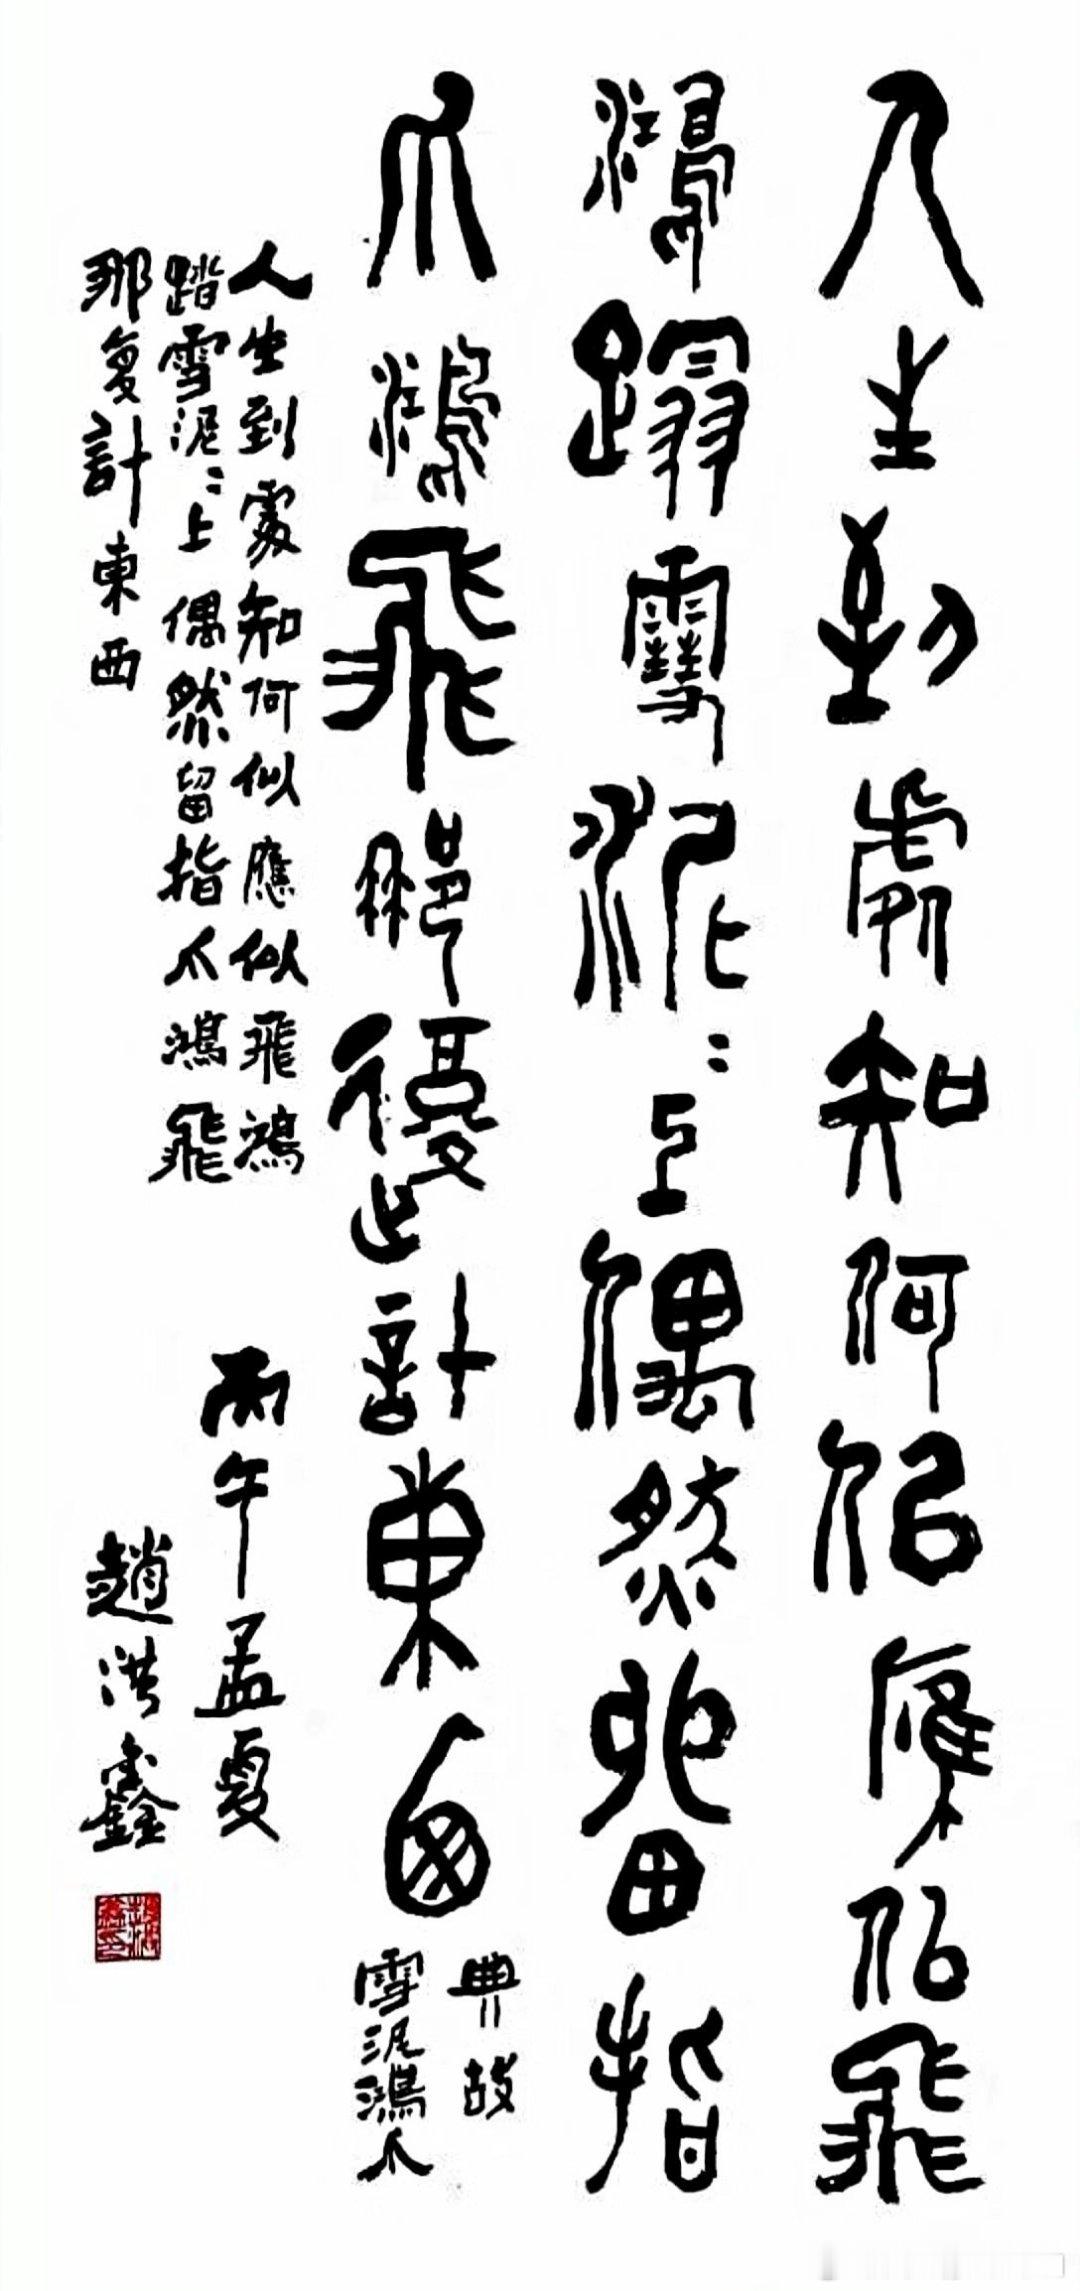 人生到處知何似應似飛
鴻蹋雪泥〻上偶然留指
爪鴻飛那復計東西
典故
雪泥鴻爪
人生到處知何似應似飛鴻
踏雪泥〻上偶然留指爪鴻飛
那复計東西
丙午孟夏
趙洪鑫